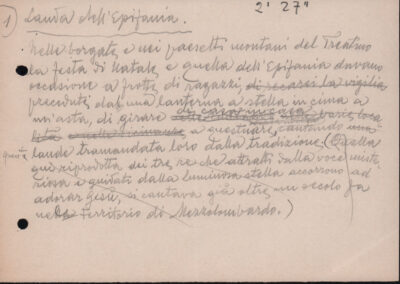 1) Lauda dell'Epifania. 2' 27"
Nelle borgate e nei paesetti montani del Trentino
la festa di Natale e quella dell'Epifania davano
occasione a frotte di ragazzi, di recarsi la vigilia
preceduti da una lanterna a stella in cima a
un'asta, di girare
a questuare, cantando una
laude tramandata loro dalla tradizione. (Quella
qui riprodotta dei tre re che attratti dalla voce miste
riosa e guidati dalla luminosa stella accorsono ad
adorar Gesù, si cantava già oltre un secolo fa
nel territorio di Mezzolombardo.)